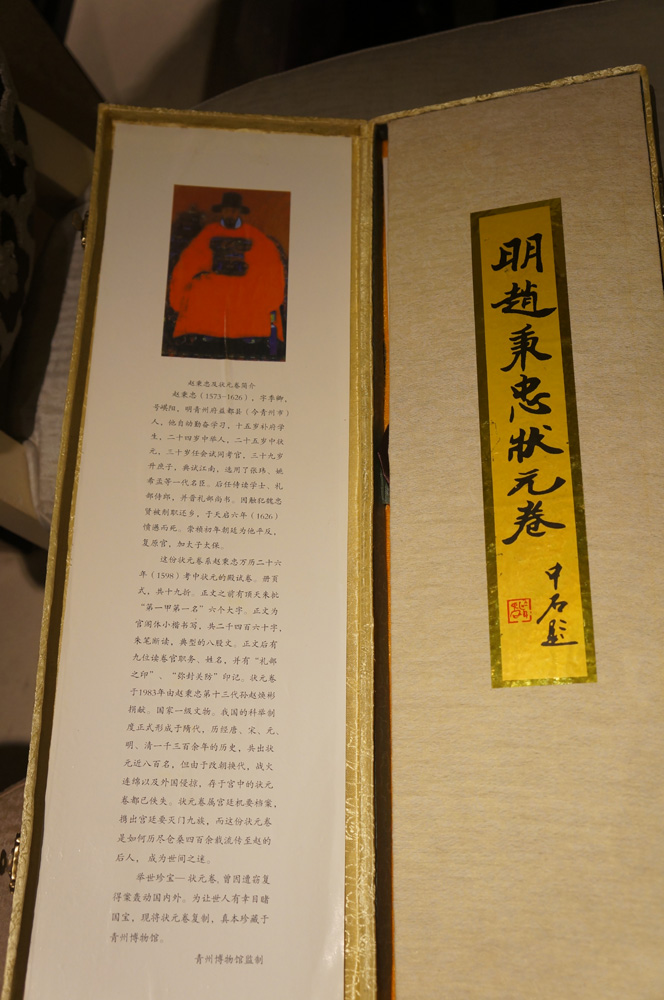 赵秉忠及状元卷简介
赵秉忠（1573-1626），字季卿，
号㟭阳，明青州府益都县（今青州市）
人，他自幼勤奋学习，十五岁补府学
生，二十四岁中举人，二十五岁中状
元，三十岁任会试同考官，三十九岁
升庶子，典试江南，选用了张玮、姚
希孟等一代名臣。后任侍读学士、礼
部侍郎，并晋礼部尚书。因触犯魏忠
贤被削职还乡，于天启六年（1626）
愤懑而死。崇祯初年朝廷为他平反，
复原官，加太子太保。
这份状元卷系赵秉忠万历二十六
年（1598）考中状元的殿试卷。册页
式，共十九折。正文之前有顶天朱批
“第一甲第一名”六个大字。正文为
官阁体小楷书写，共二千四百六十字，
朱笔断读，典型的八股文。正文后有
九位读卷官职务、姓名，并有“礼部
之印”、“弥封关防”印记。状元卷
于1983年由赵秉忠第十三代孙赵焕彬
捐献。国家一级文物。我国的科举制
度正式形成于隋代，历经唐、宋、元、
明、清一千三百余年的历史，共出状
元近八百名，但由于改朝换代，战火
连绵以及外国侵掠，存于宫中的状元
卷都已佚失。状元卷属宫廷机要档案，
携出宫廷要灭门九族，而这份状元卷
是如何历尽仓桑四百余载流传至赵的
后人，成为世间之谜。
举世珍宝—状元卷，曾因遭窃复
得案轰动国内外。为让世人有幸目睹
国宝，现将状元卷复制，真本珍藏于
青州博物馆。
青州博物馆监制
明趙秉忠狀元卷
中石题